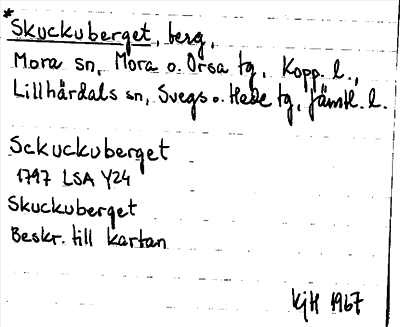 * Skuckuberget, berg,
Mora sn, Mora o. Orsa tg, Kopp. l.,
Lillhärdals sn, Svegs o. Hede tg, Jämtl. l.
Sckuckuberget
1797 LSA Y24
Skuckuberget
Beskr. till kartan
KjH 1967